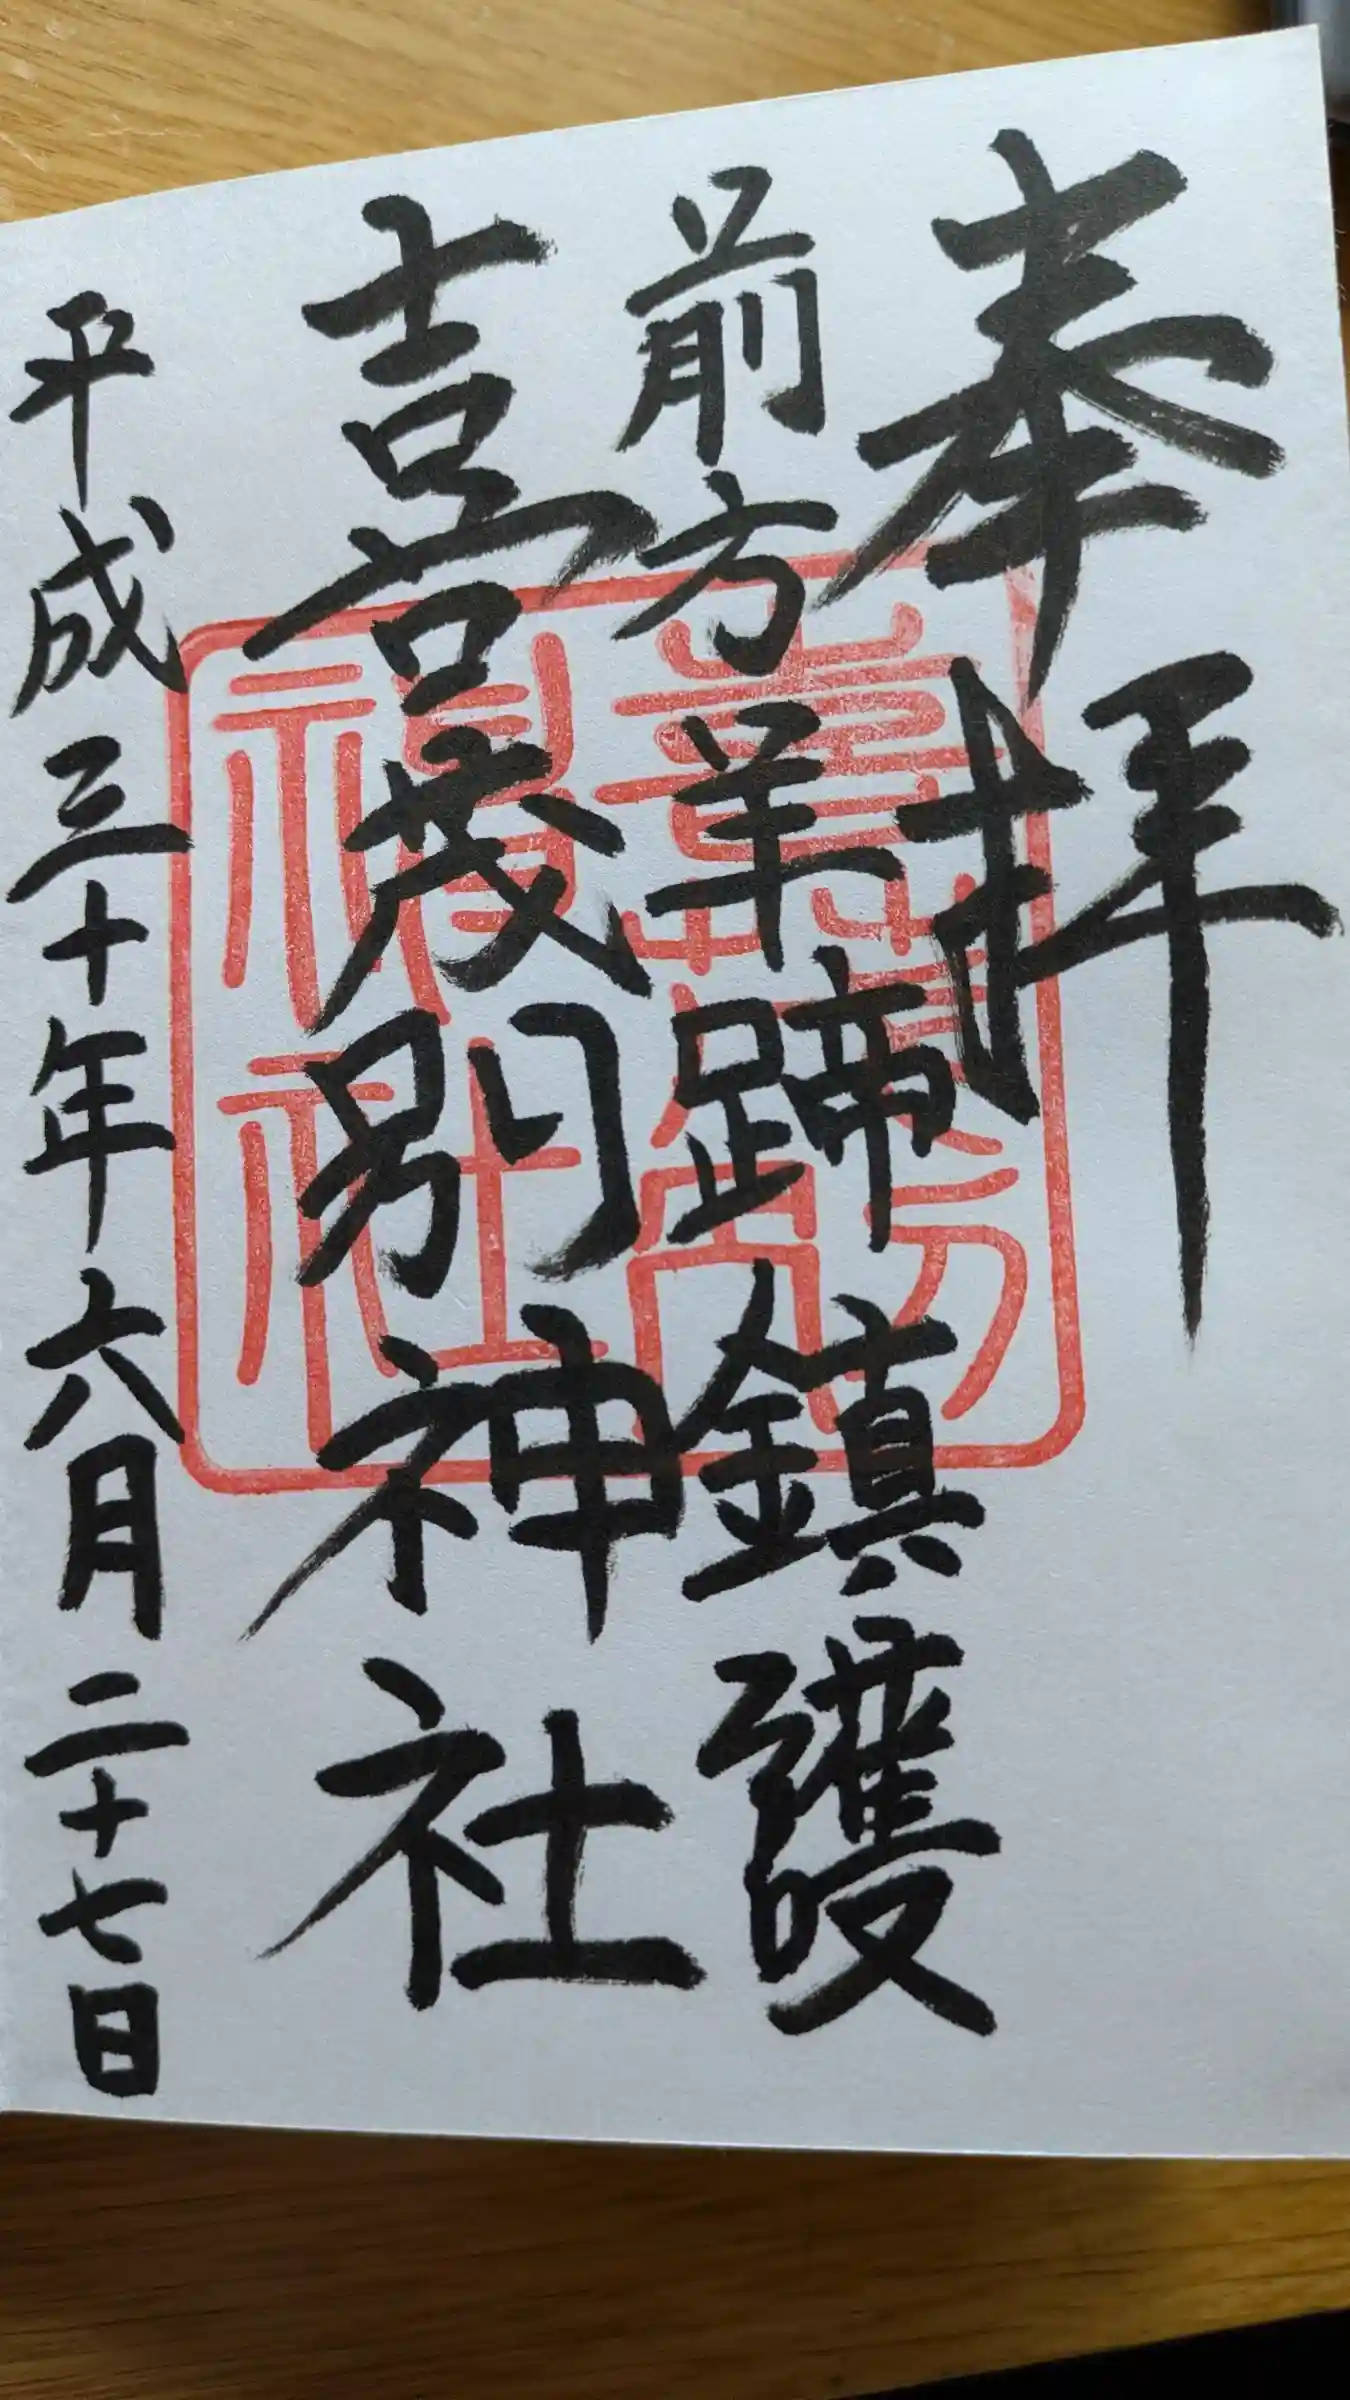 奉拝
前方羊蹄鎮護
喜茂別神社
平成三十年六月二十七日
喜茂別神社